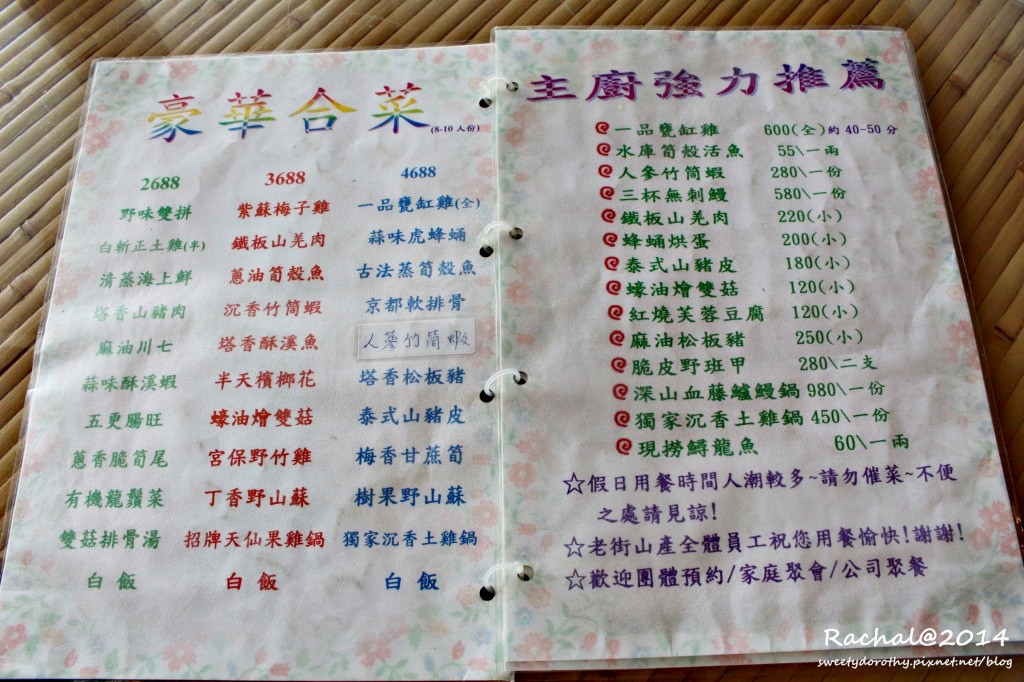 豪華合菜(8-10人份)
2688 3688 4688
野味雙拼 紫蘇梅子雞 一品甕缸雞(全)
白斬正土雞(半) 鐵板山羌肉 蒜味虎蜂蛹
清蒸海上鮮 蔥油筍殼魚 古法蒸筍殼魚
塔香山豬肉 沉香竹筒蝦 京都軟排骨
麻油川七 塔香酥溪魚 人蔘竹筒蝦
蒜味酥溪蝦 半天檳榔花 塔香松板豬
五更腸旺 蠔油燴雙菇 泰式山豬皮
蔥香脆筍尾 宮保野竹雞 梅香甘蔗筍
有機龍鬚菜 丁香野山蘇 樹果野山蘇
雙菇排骨湯 招牌天仙果雞鍋 獨家沉香土雞鍋
白飯 白飯 白飯
主廚強力推薦
一品甕缸雞 600(全)約40-50分
水庫筍殼活魚 55\一兩
人參竹筒蝦 280\一份
三杯無刺鰻 580\一份
鐵板山羌肉 220(小)
蜂蛹烘蛋 200(小)
泰式山豬皮 180(小)
蠔油燴雙菇 120(小)
紅燒芙蓉豆腐 120(小)
麻油松板豬 250(小)
脆皮野班甲 280\二支
深山血藤鱸鰻鍋 980\一份
獨家沉香土雞鍋 450\一份
現撈鱘龍魚 60\一兩
☆假日用餐時間人潮較多~請勿催菜~不便
之處請見諒!
☆老街山產全體員工祝您用餐愉快!謝謝!
☆歡迎團體預約/家庭聚會/公司聚餐
Rachal@2014
sweetydorothy.pixnet.net/blog